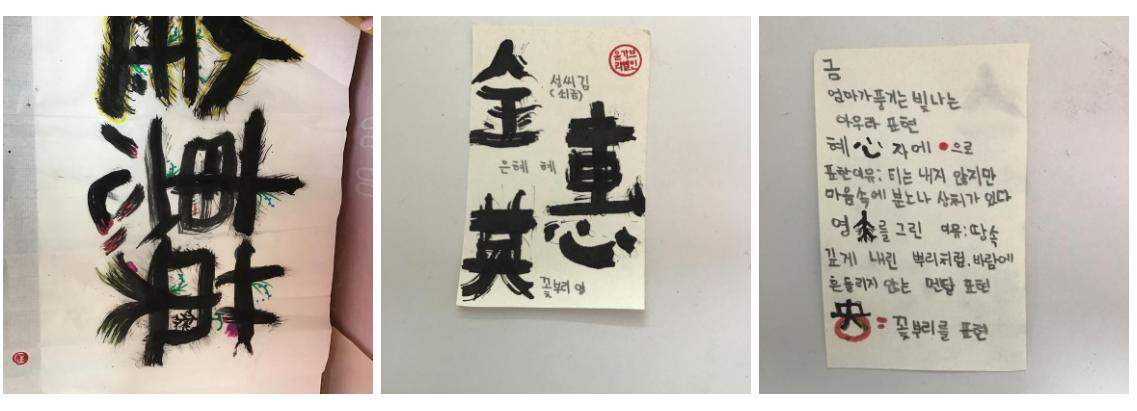 金惠英
金
성씨 김
(쇠금)
惠
은혜 혜
英
꽃부리 영
금
엄마가 풍기는 빛나는
아우라 표현
혜 心 자에 으로
표현이유: 티는 내지 않지만
마음속에 분노나 상처가 있다
영 를 그린 이유: 땅속
깊게 내린 뿌리처럼, 바람에
흔들리지 않는 멘탈 표현
央 = 꽃부리를 표현